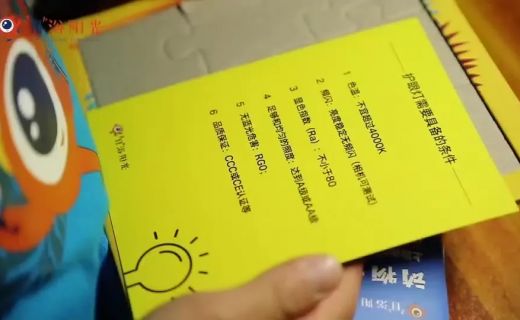 沿阳光
护眼灯需要具备的条件
1 色温：不宜超过4000K
2 频闪：亮度稳定无频闪（相机可测试）
3 显色指数（Ra）：不小于80
4 足够和均匀的照度：达到A级或AA级
5 无蓝光危害：RG0；
6 品质保证：CCC或CE认证等
阳光
动物
阳